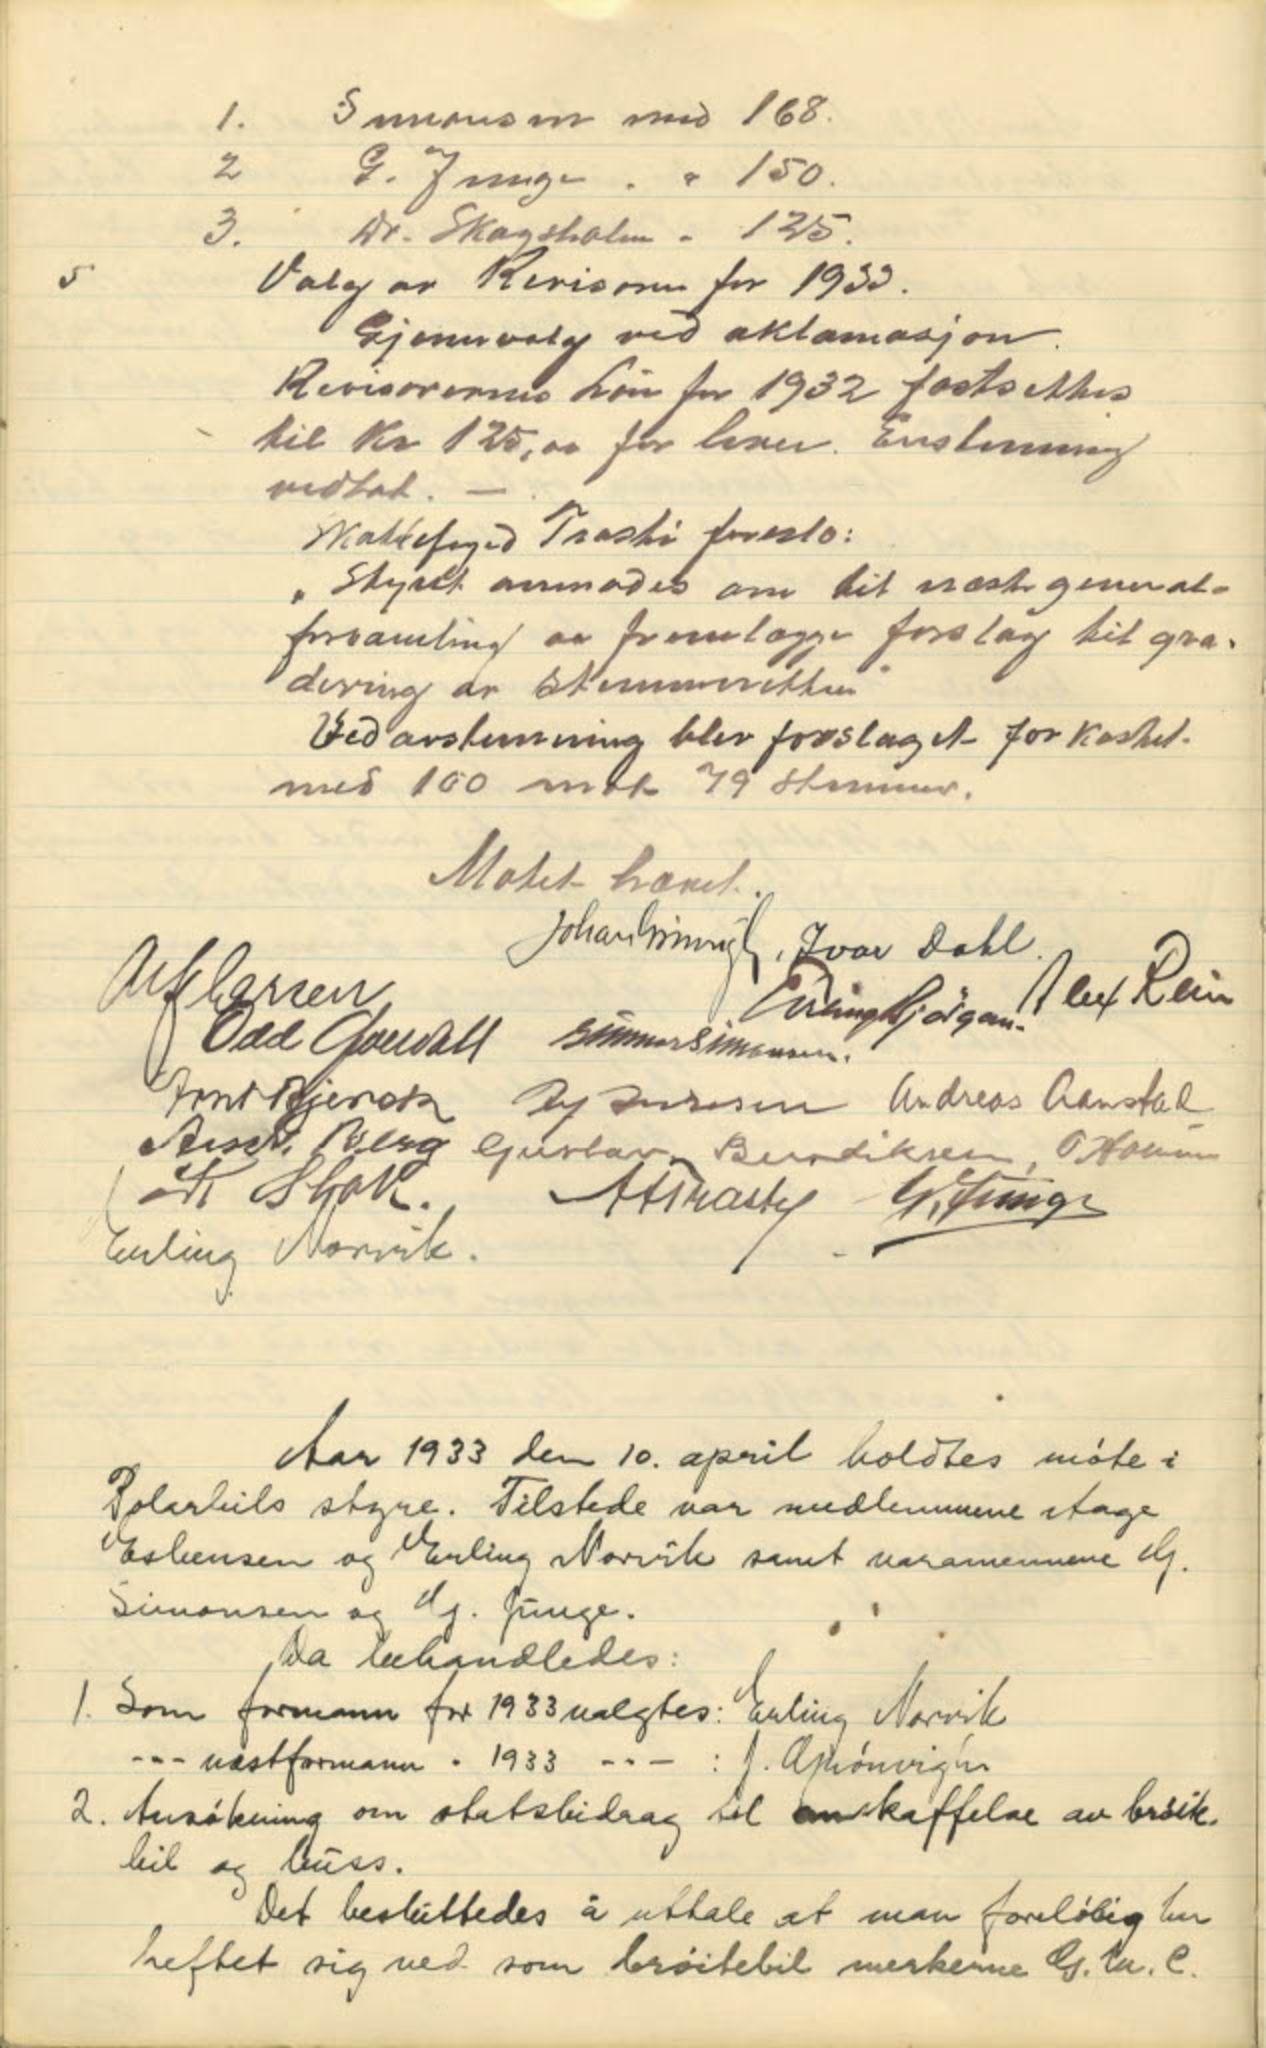 1. Simonsen med 168.
2 G. Junge . " 150.
3. Dr. Skagsholm " 125.
5 Valg av Revisorer for 1933.
Gjenvalg ved aklamasjon.
Revisorernes Lön for 1932 fastsettes
til Kr 125,00 for hver. Enstemmig
vedtat. —
Skattefoged Trasti foreslo:
„Styret anmodes om til næste general-
forsamling aa fremlægge forslag til gra-
dering av stemmeretten"
Ved avstemning blev forslaget forkastet
med 100 mot 79 stemmer.
Møtet hævet.
Ivar Dahl.
Alf Larsen Erling Bjørgan. Alex Rein
Odd Simonsen.
Andreas Aanstad
Berg Gustav Bendiksen,
A Trasti G. Junge
Erling Norvik.
Aar 1933 den 10. april holdtes móte i
Polarbils styre. Tilstede var medlemmene Aage
Esbensen og Erling Norvik samt varamennene Hj.
Simonsen og G. Junge.
Da behandledes:
1. Som formann for 1933 valgtes: Erling Norvik
--- næstformann " 1933 --- : J. Grönvigh
2. Ansökning om statsbidrag til anskaffelse av bröite-
bil og buss.
Det besluttedes å uttale at man forelöbig har
heftet sig ved som bröitebil merkerne G. M. C.